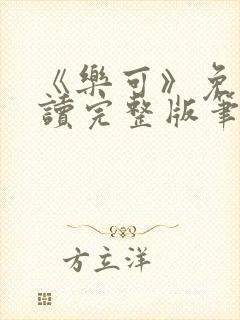 《樂可》免
讀完整版筆
方立洋